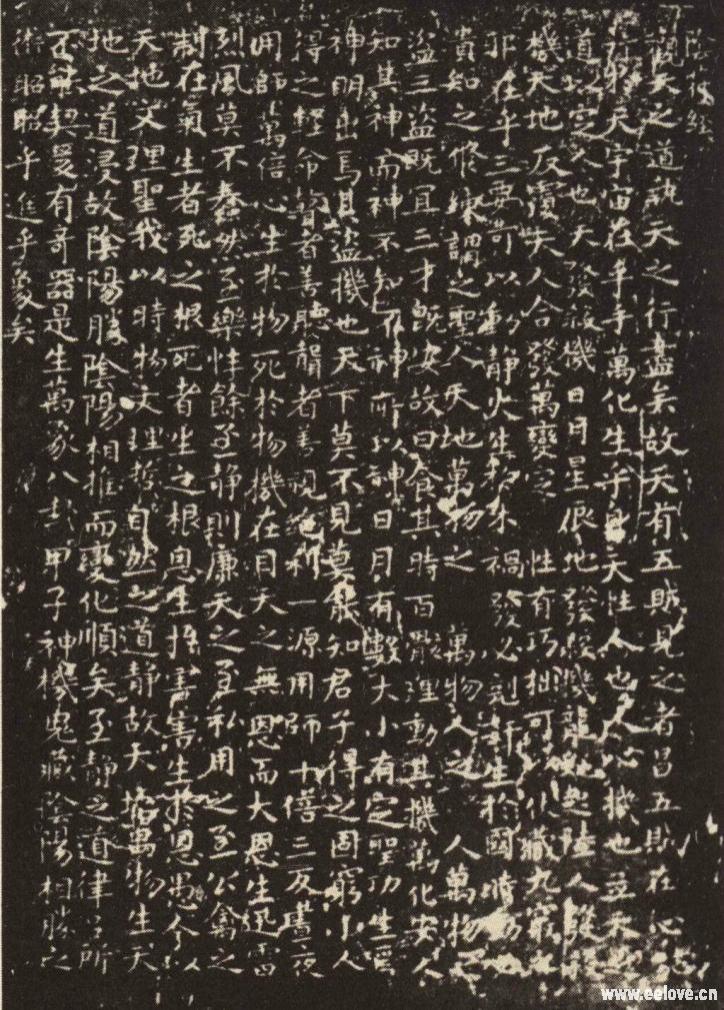 陰符經
觀天之道執天之行盡矣故天有五賊見之者昌五賊在心施
行於天宇宙在乎手萬化生乎身天性人也人心機也立天之
道以定人也天發殺機日月星辰地發殺機龍蛇起陸人發殺
機天地反覆天人合發萬變定 性有巧拙可以伏藏九竅之
邪在乎三要可以動靜火生於木禍發必剋奸生於國時動必
潰知之修煉謂之聖人天地萬物之 萬物人之 人萬物之
盜三盜既宜三才既安故曰食其時百骸理動其機萬化安人
知其神而神不知不神所以神日月有數大小有定聖功生焉
神明出焉其盜機也天下莫不見莫能知君子得之固窮小人
得之輕命瞽者善聽聾者善視絕利一源用師十倍三反晝夜
用師萬倍心生於物死於物機在目天之無恩而大恩生迅雷
烈風莫不蠢然至樂性餘至靜則廉天之至私用之至公禽之
制在氣生者死之根死者生之根恩生於害害生於恩愚人以
天地文理聖我以時物文理哲自然之道靜故天地萬物生天
地之道浸故陰陽勝陰陽相推而變化順矣至靜之道律呂所
不能契爰有奇器是生萬象八卦甲子神機鬼藏陰陽相勝之
術昭昭乎進乎象矣
www.eelove.cn